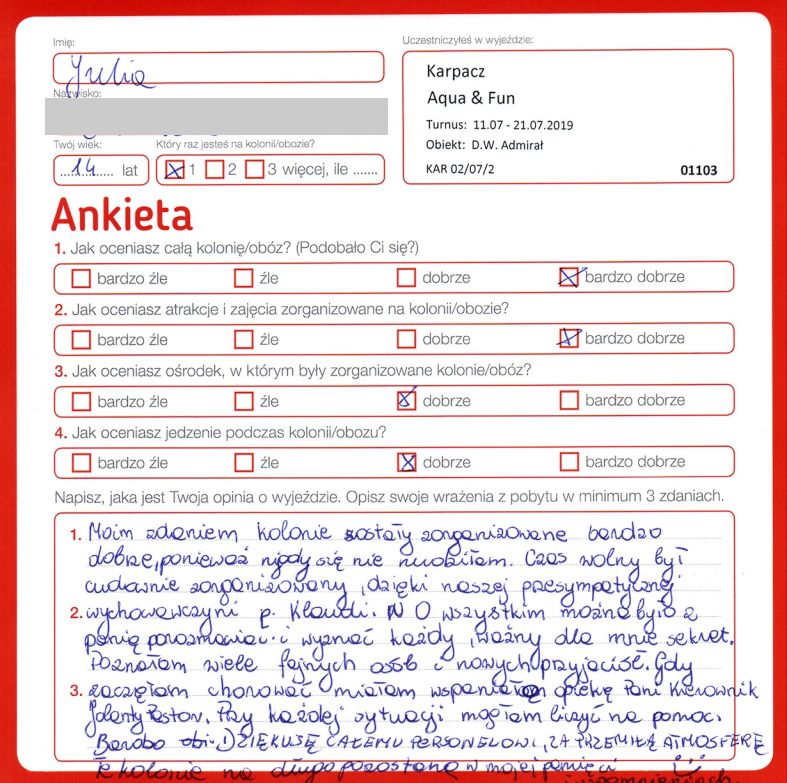 Imię:
Uczestniczyłeś w wyjeździe:
Julia
Karpacz
Nazwisko:
Aqua & Fun
Turnus: 11.07 - 21.07.2019
Twój wiek: Który raz jesteś na kolonii/obozie?
Obiekt: D.W. Admirał
14 lat 1 2 3 więcej, ile .......
KAR 02/07/2 01103
Ankieta
1. Jak oceniasz całą kolonię/obóz? (Podobało Ci się?)
bardzo źle źle dobrze bardzo dobrze
2. Jak oceniasz atrakcje i zajęcia zorganizowane na kolonii/obozie?
bardzo źle źle dobrze bardzo dobrze
3. Jak oceniasz ośrodek, w którym były zorganizowane kolonie/obóz?
bardzo źle źle dobrze bardzo dobrze
4. Jak oceniasz jedzenie podczas kolonii/obozu?
bardzo źle źle dobrze bardzo dobrze
Napisz, jaka jest Twoja opinia o wyjeździe. Opisz swoje wrażenia z pobytu w minimum 3 zdaniach.
1. Moim zdaniem kolonie zostały zorganizowane bardzo
dobrze, ponieważ nigdy się nie nudziłam. Czas wolny był
cudownie zorganizowany, dzięki naszej przesympatycznej
2. wychowawczyni p. Klaudi. O wszystkim można było z
panią porozmawiać i wyznać każdy, ważny dla mnie sekret.
Poznałam wiele fajnych osób i nowych przyjaciół. Gdy
3. zaczęłam chorować miałam wspaniałą opiekę Pani Kierownik
Jolanty. Przy każdej sytuacji mogłam liczyć na pomoc.
DZIĘKUSĘ CAŁEMU PERSONELOWI, ZA PRZEMIŁĄ ATMOSFERĘ
Te kolonie na długo pozostaną w mojej pamięci